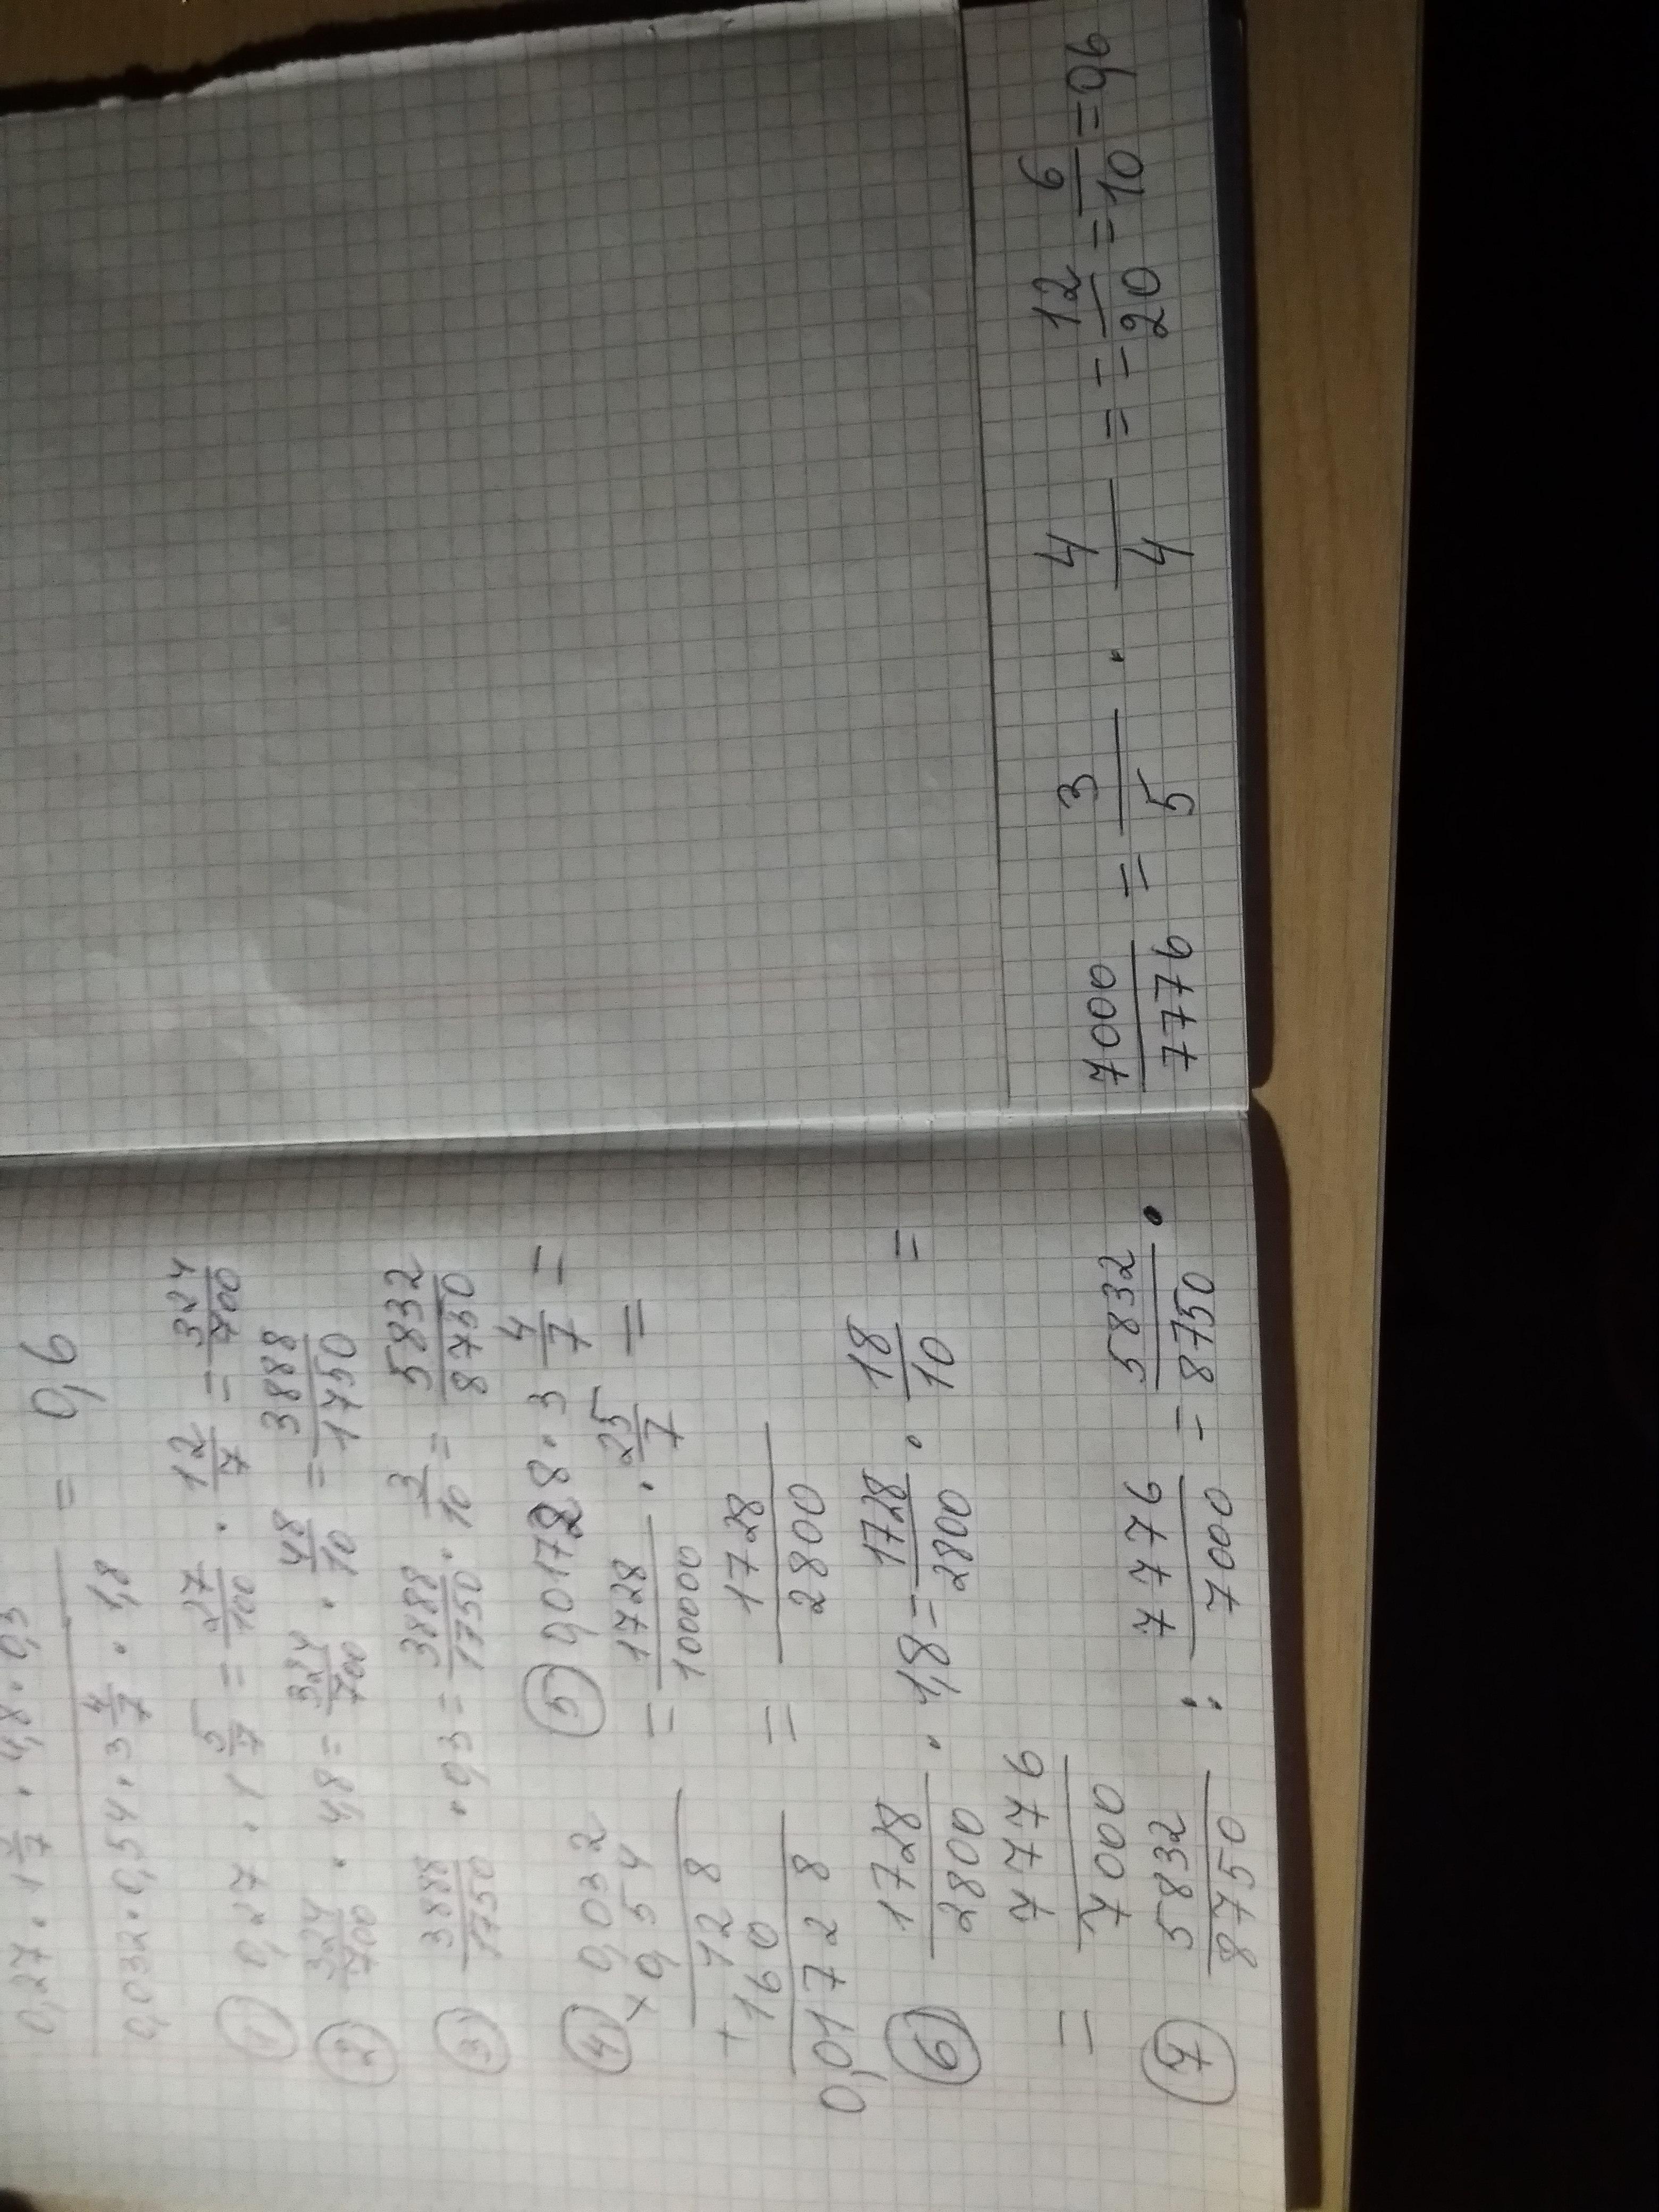 0,27 · 1 5/7 · 4,8 · 0,3
= 0,6
0,032 · 0,54 · 3 4/7 · 1,8
① 0,27 · 1 5/7 = 27/100 · 12/7 = 324/700
② 324/700 · 4,8 = 324/700 · 48/10 = 3888/1750
③ 3888/1750 · 0,3 = 3888/1750 · 3/10 = 5832/8750
④ 0,032
× 0,54
128
+ 160
0,01728
⑤ 0,01728 · 3 4/7 =
= 1728/100000 · 25/7 =
= 1728/2800
⑥ 1728/2800 · 1,8 = 1728/2800 · 18/10 =
= 7776/7000
⑦ 5832/8750 : 7776/7000 = 5832/8750 · 7000/7776 = 3/5 · 4/4 = = 12/20 = 6/10 = 0,6